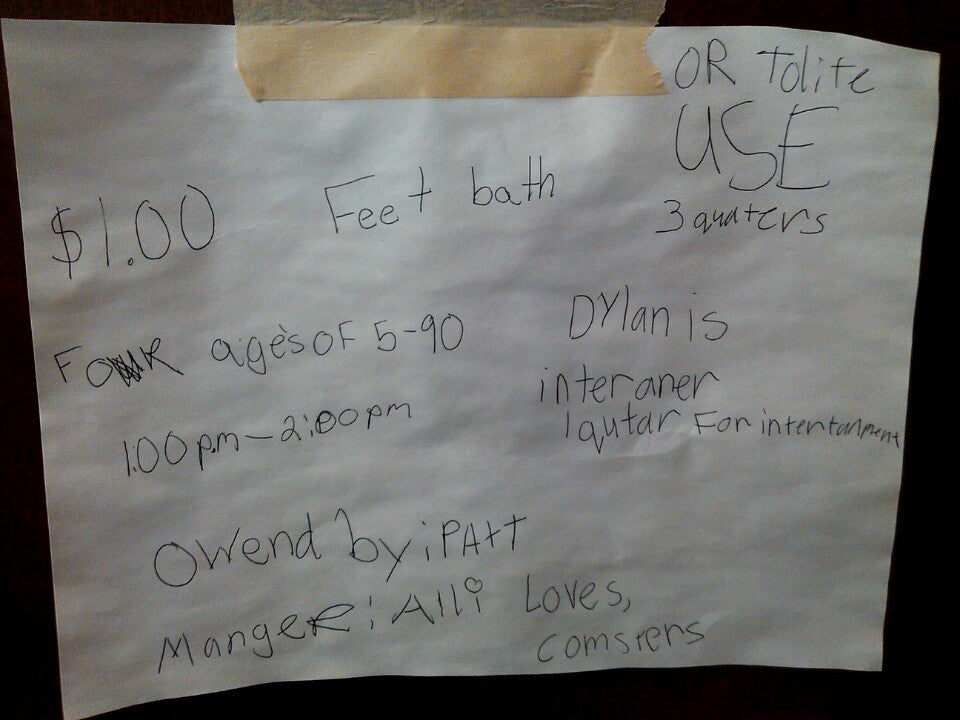 OR Tolite
USE
3 quaters
$1.00
Feet bath
For ages of 5-90
1:00 pm - 2:00 pm
DYlan is
interaner
1 qutar For intentanment
Owend by iPAtt
Manger: Alli Loves,
Comsters